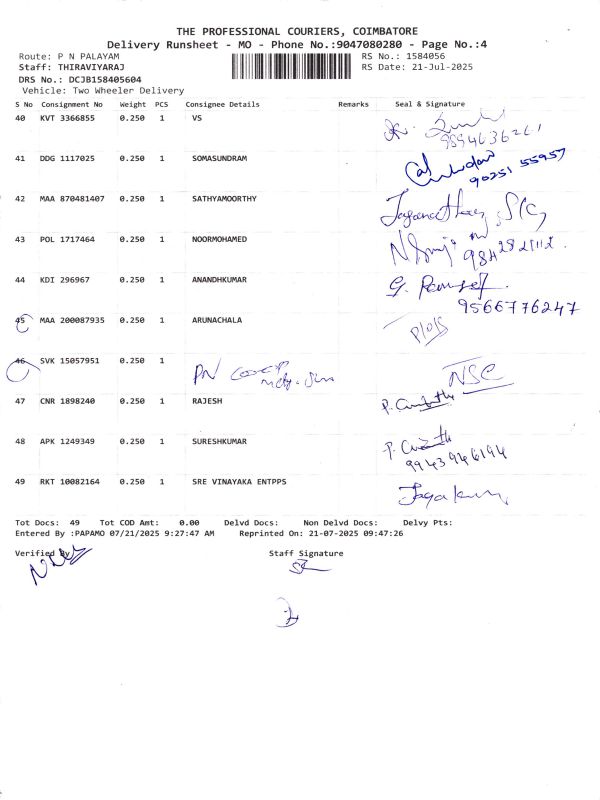 THE PROFESSIONAL COURIERS, COIMBATORE
Delivery Runsheet - MO - Phone No.:9047080280 - Page No.:4
Route: P N PALAYAM RS No.: 1584056
Staff: THIRAVIYARAJ RS Date: 21-Jul-2025
DRS No.: DCJB158405604
Vehicle: Two Wheeler Delivery
S No Consignment No Weight PCS Consignee Details Remarks Seal & Signature
40 KVT 3366855 0.250 1 VS
41 DDG 1117025 0.250 1 SOMASUNDRAM
90251 55957
42 MAA 870481407 0.250 1 SATHYAMOORTHY
43 POL 1717464 0.250 1 NOORMOHAMED
44 KDI 296967 0.250 1 ANANDHKUMAR G.
9566776247
45 MAA 200087935 0.250 1 ARUNACHALA
46 SVK 15057951 0.250 1
PN NSC
47 CNR 1898240 0.250 1 RAJESH P.
48 APK 1249349 0.250 1 SURESHKUMAR P.
99439 46194
49 RKT 10082164 0.250 1 SRE VINAYAKA ENTPPS
Tot Docs: 49 Tot COD Amt: 0.00 Delvd Docs: Non Delvd Docs: Delvy Pts:
Entered By :PAPAMO 07/21/2025 9:27:47 AM Reprinted On: 21-07-2025 09:47:26
Verified By Staff Signature